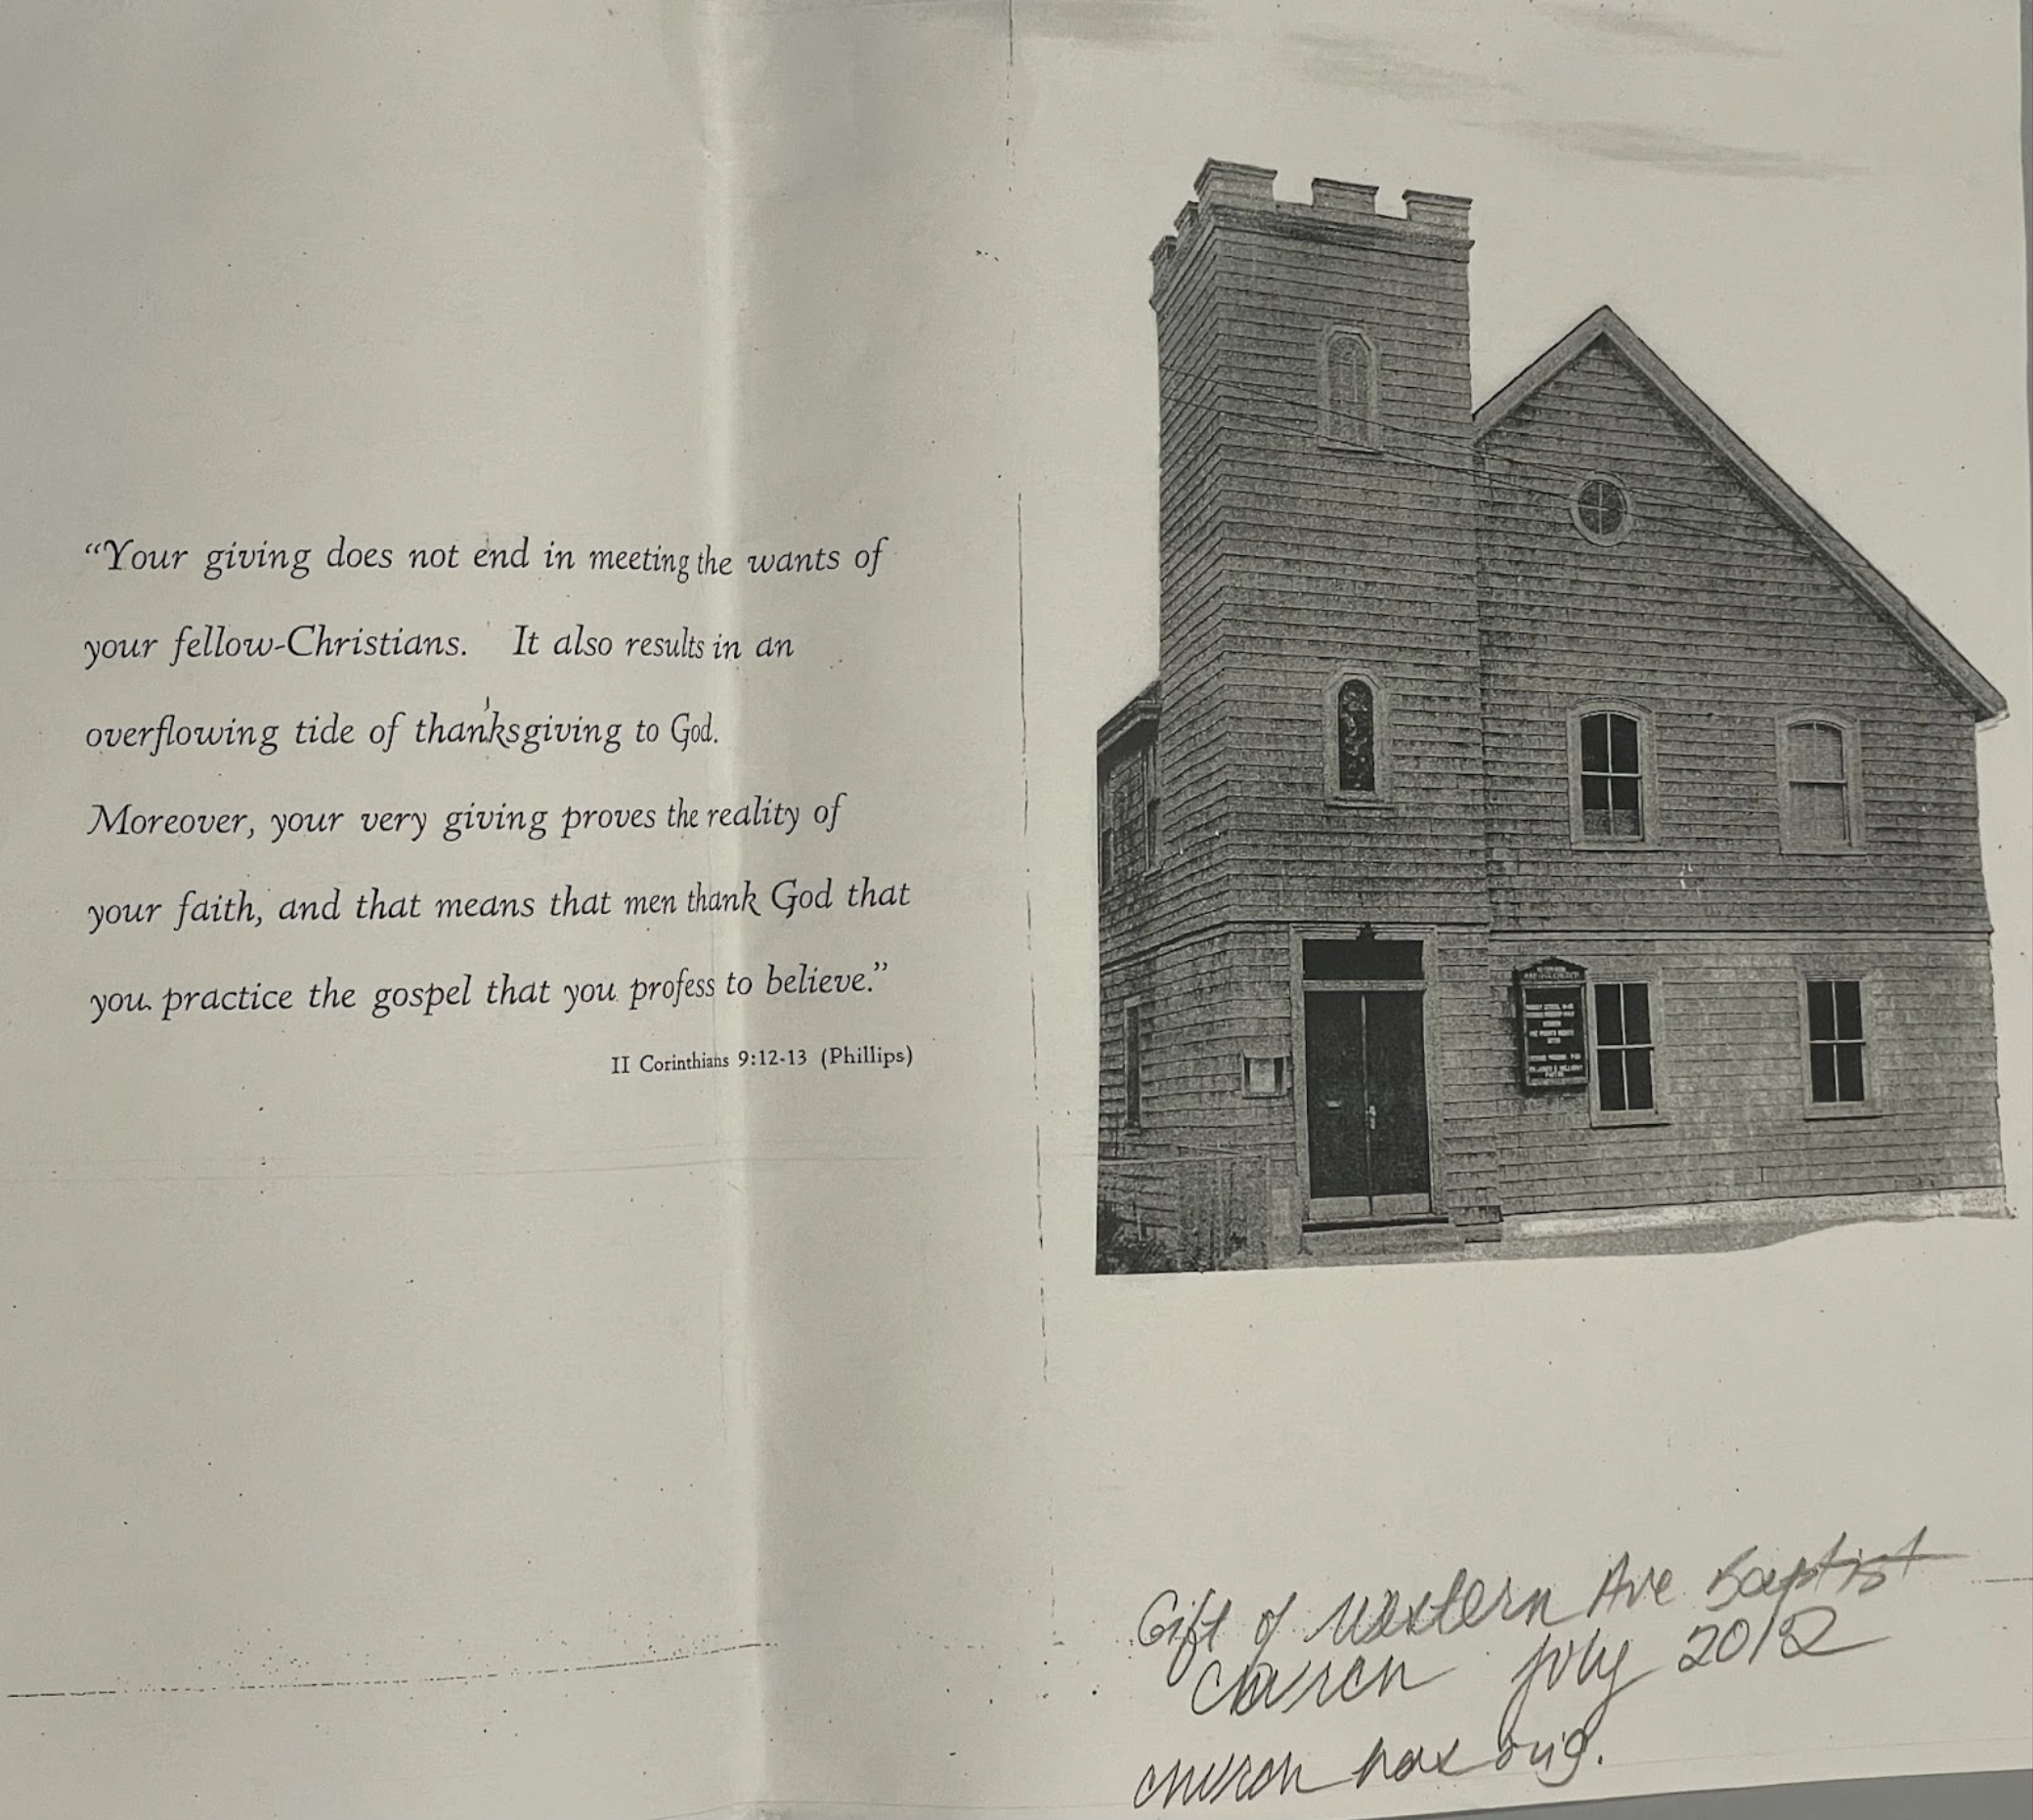 “Your giving does not end in meeting the wants of
your fellow-Christians. It also results in an
overflowing tide of thanksgiving to God.
Moreover, your very giving proves the reality of
your faith, and that means that men thank God that
you practice the gospel that you profess to believe.”
II Corinthians 9:12-13 (Phillips)
Gift of Western Ave Baptist
Church July 2012
church has orig.